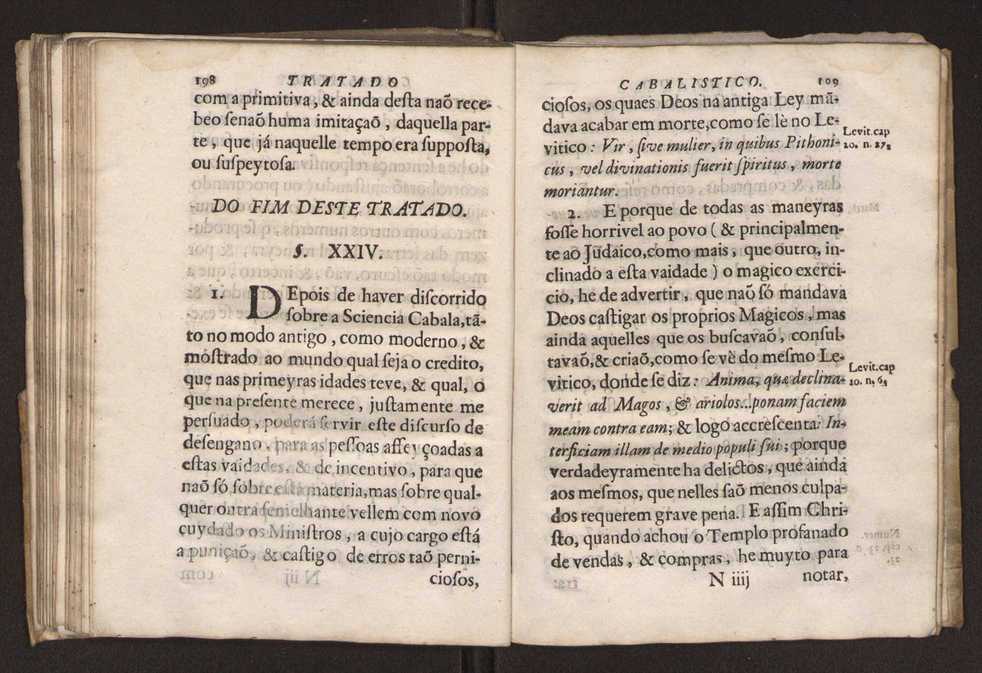 198 TRATADO
com a primitiva, & ainda desta naõ rece-
beo senaõ huma imitaçaõ, daquella par-
te, que já naquelle tempo era supposta,
ou suspeytosa.
DO FIM DESTE TRATADO.
§. XXIV.
1. DEpois de haver discorrido
sobre a Sciencia Cabala, tã-
to no modo antigo, como moderno, &
mostrado ao mundo qual seja o credito,
que nas primeyras idades teve, & qual, o
que na presente merece, justamente me
persuado, poderá servir este discurso de
desengano, para as pessoas affeyçoadas a
estas vaidades, & de incentivo, para que
naõ só sobre esta materia, mas sobre qual-
quer outra semelhante vellem com novo
cuydado os Ministros, a cujo cargo está
a puniçaõ, & castigo de erros taõ perni-
N iij ciosos,
CABALISTICO. 109
ciosos, os quaes Deos na antiga Ley mã-
dava acabar em morte, como se lè no Le-
vitico: Vir, sive mulier, in quibus Pithoni-
cus, vel divinationis fuerit spiritus, morte
moriantur.
Levit. cap
20. n. 27,
2. E porque de todas as maneyras
fosse horrivel ao povo (& principalmen-
te ao Judaico, como mais, que outro, in-
clinado a esta vaidade) o magico exerci-
cio, he de advertir, que naõ só mandava
Deos castigar os proprios Magicos, mas
ainda aquelles que os buscavaõ, consul-
tavaõ, & criaõ, como se vè do mesmo Le-
vitico, donde se diz: Anima, quæ declina-
verit ad Magos, & ariolos... ponam faciem
meam contra eam; & logo accrescenta: In-
terficiam illam de medio populi sui; porque
verdadeyramente ha delictos, que ainda
aos mesmos, que nelles saõ menos culpa-
dos requerem grave pena. E assim Chri-
sto, quando achou o Templo profanado
de vendas, & compras, he muyto para
Levit. cap
20. n, 6,
N iiij notar,